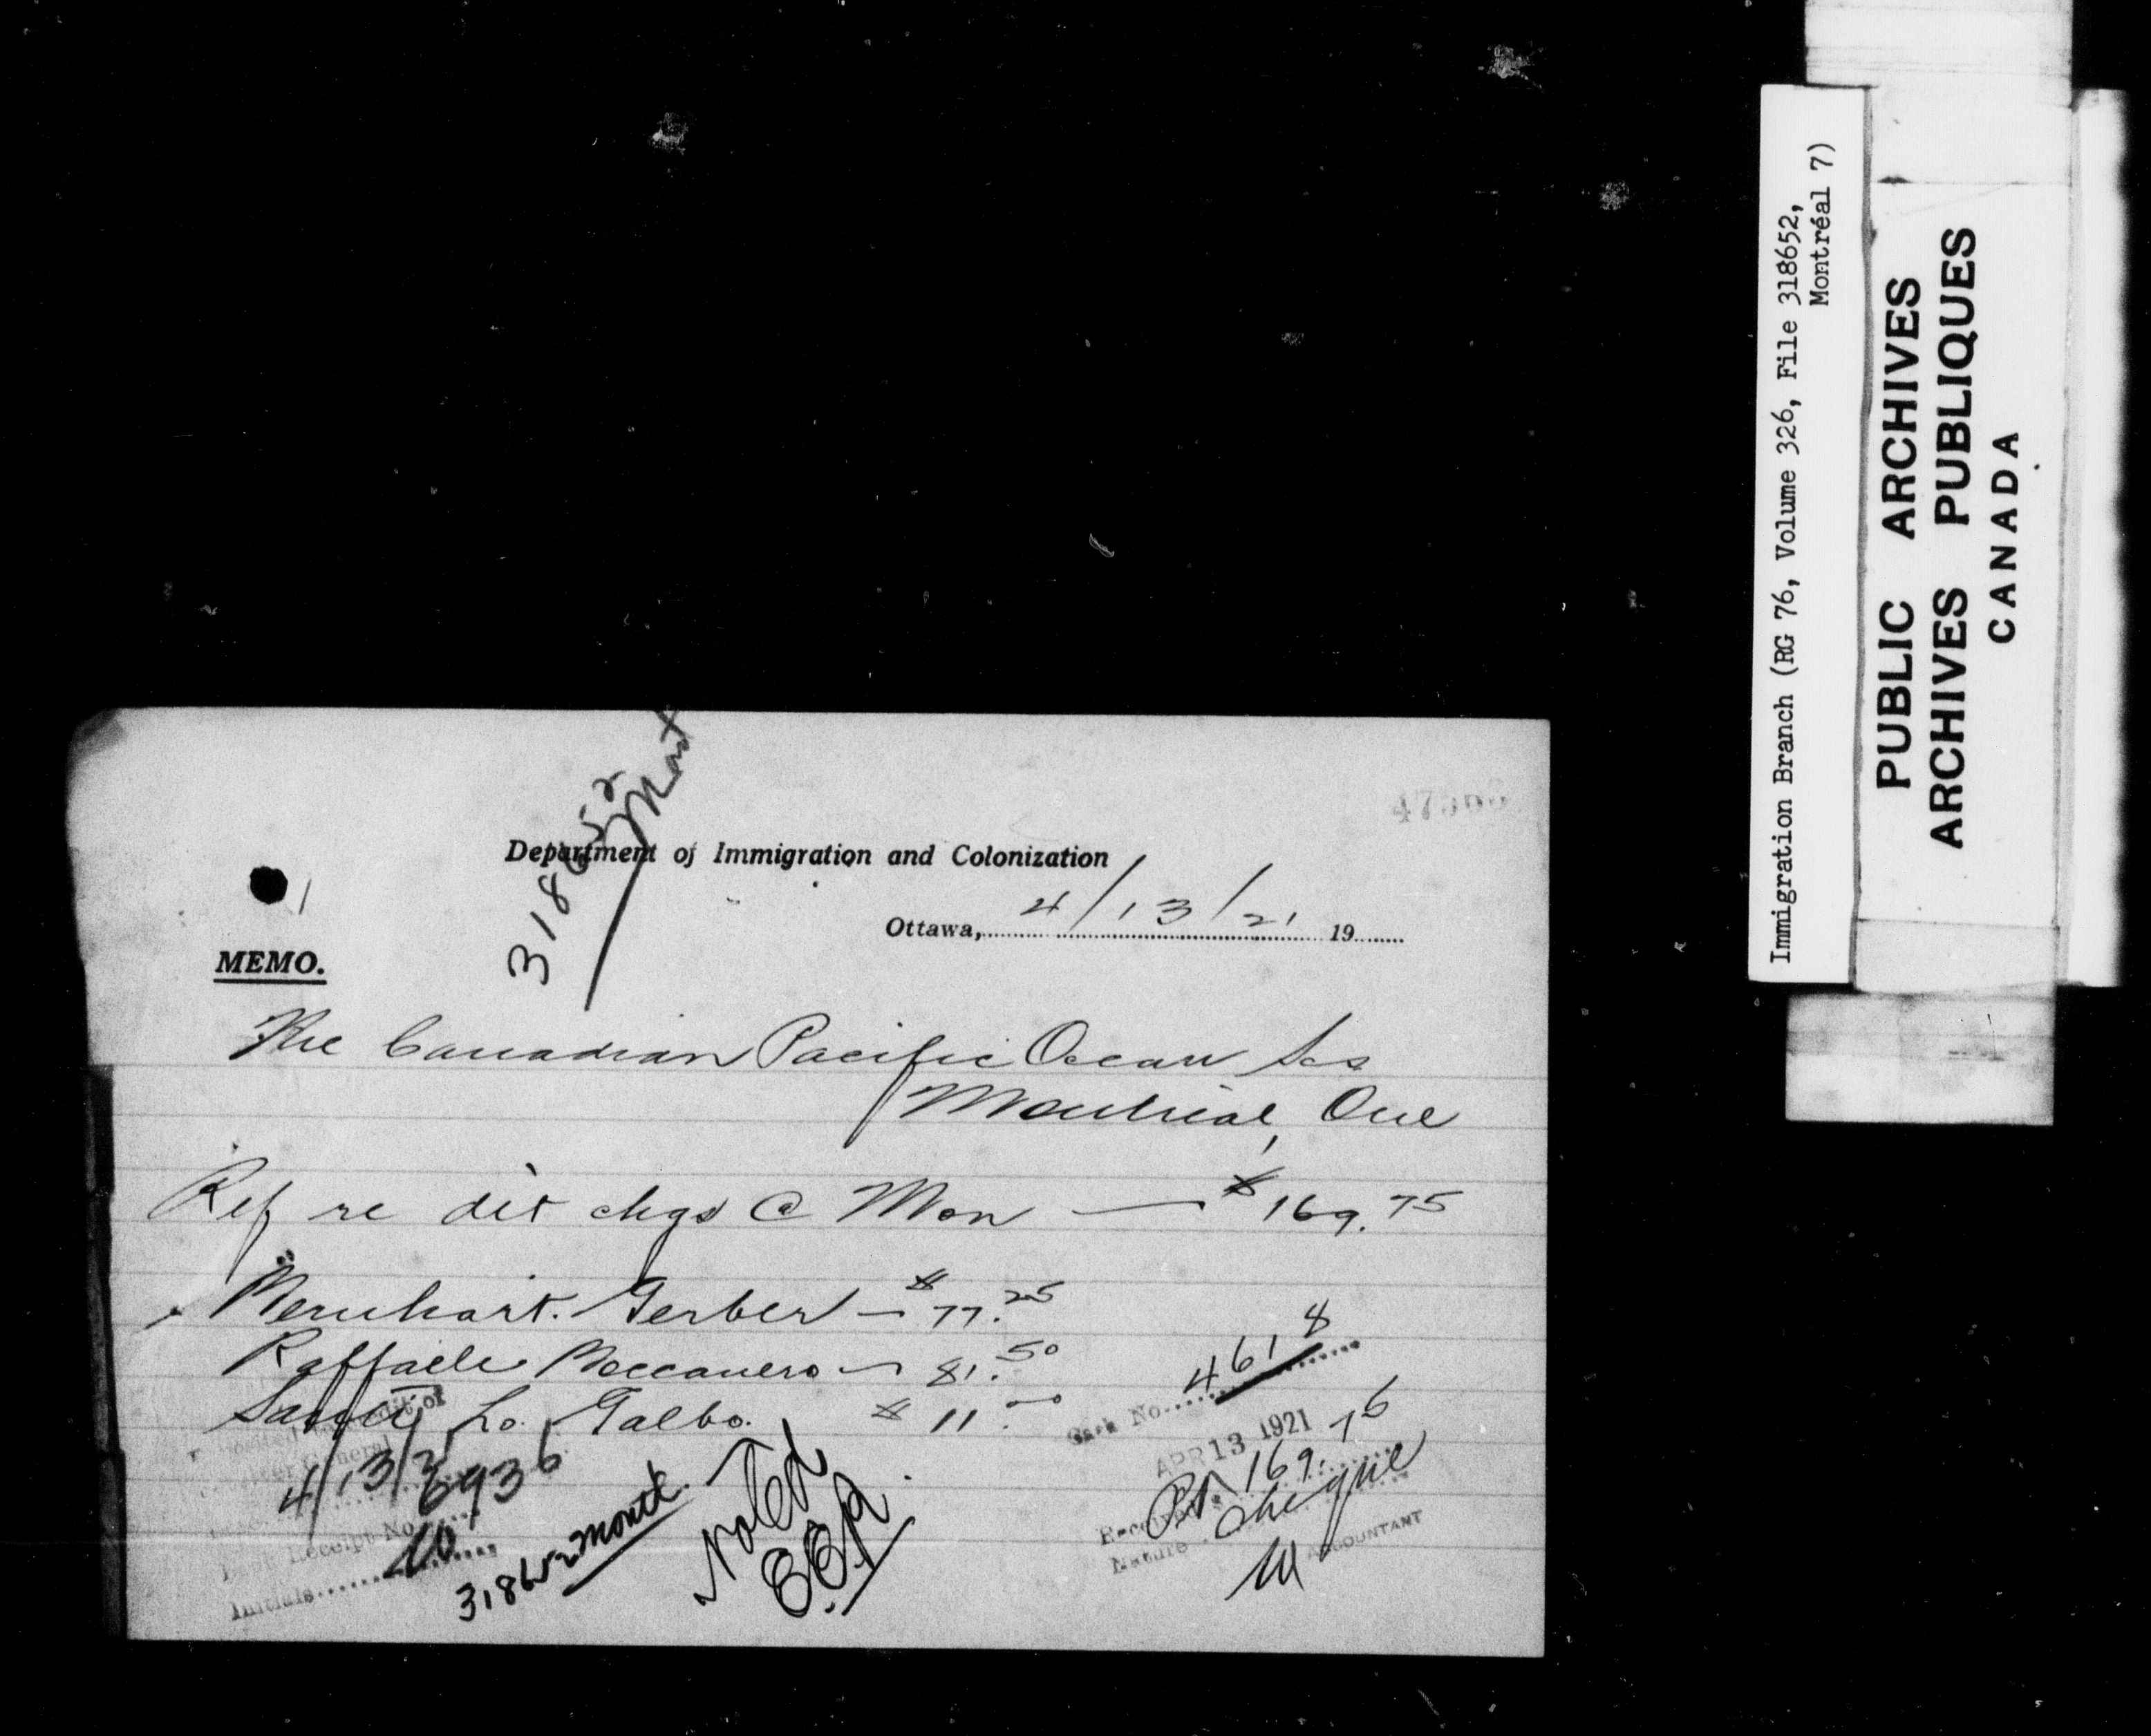 318652 Mont
Department of Immigration and Colonization
Ottawa, 4/13/21 19
MEMO.
The Canadian Pacific Ocean Scs
Montreal, Que
Ref re det chgs @ Mon — $169.75
Gerber — $77.25
Raffaele — 81.50
Lo Galbo. $11.00
4/13/21
6936
Receipt No.
Initials
318652 Mont.
Noted
Cash No. 4618
APR 13 1921
169.75
Received
Nature cheque
ACCOUNTANT
Immigration Branch (RG 76, Volume 326, File 318652,
Montréal 7)
PUBLIC ARCHIVES
ARCHIVES PUBLIQUES
CANADA